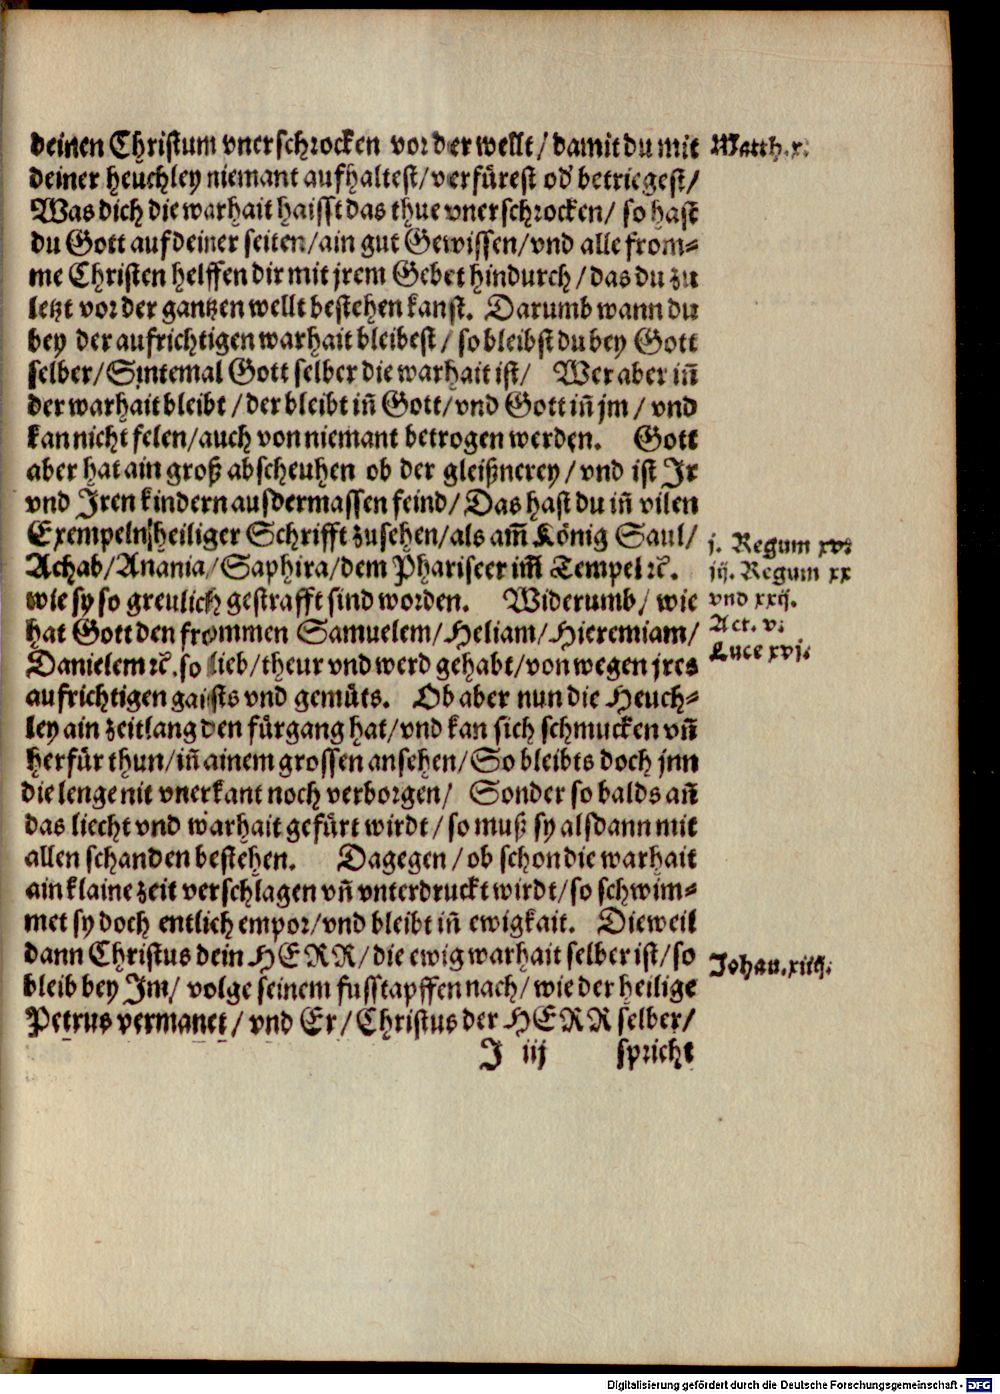 deinen Christum vnerschrocken vor der wellt / damit du mit
Matth. x.
deiner heuchley niemant aufhaltest / verfürest od' betriegest /
Was dich die warhait haisst das thue vnerschrocken / so hast
du Gott auf deiner seiten / ain gut Gewissen / vnd alle from=
me Christen helffen dir mit jrem Gebet hindurch / das du zu
letzt vor der gantzen wellt bestehen kanst. Darumb wann du
bey der aufrichtigen warhait bleibest / so bleibst du bey Gott
selber / Sintemal Gott selber die warhait ist / Wer aber iñ
der warhait bleibt / der bleibt iñ Gott / vnd Gott iñ jm / vnd
kan nicht felen / auch von niemant betrogen werden. Gott
aber hat ain groß abscheuhen ob der gleißnerey / vnd ist Jr
vnd Jren kindern ausdermassen feind / Das hast du iñ vilen
Exempeln heiliger Schrifft zusehen / als am̃ König Saul /
j. Regum xv.
Achab / Anania / Saphira / dem Phariseer im̃ Tempel ꝛc̃.
iij. Regum xx
wie sy so greulich gestrafft sind worden. Widerumb / wie
vnd xxij.
hat Gott den frommen Samuelem / Heliam / Hieremiam /
Act. v.
Danielem ꝛc̃. so lieb / theur vnd werd gehabt / von wegen jres
Luce xvj.
aufrichtigen gaists vnd gemüts. Ob aber nun die Heuch=
ley ain zeitlang den fürgang hat / vnd kan sich schmucken vñ
herfür thun / iñ ainem grossen ansehen / So bleibts doch jnn
die lenge nit vnerkant noch verborgen / Sonder so balds añ
das liecht vnd warhait gefürt wirdt / so muß sy alsdann mit
allen schanden bestehen. Dagegen / ob schon die warhait
ain klaine zeit verschlagen vñ vnterdruckt wirdt / so schwim=
met sy doch entlich empor / vnd bleibt iñ ewigkait. Dieweil
dann Christus dein HERR / die ewig warhait selber ist / so
Johan. xiiij.
bleib bey Jm / volge seinem fusstapffen nach / wie der heilige
Petrus vermanet / vnd Er / Christus der HERR selber /
J iij spricht
Digitalisierung gefördert durch die Deutsche Forschungsgemeinschaft - DFG